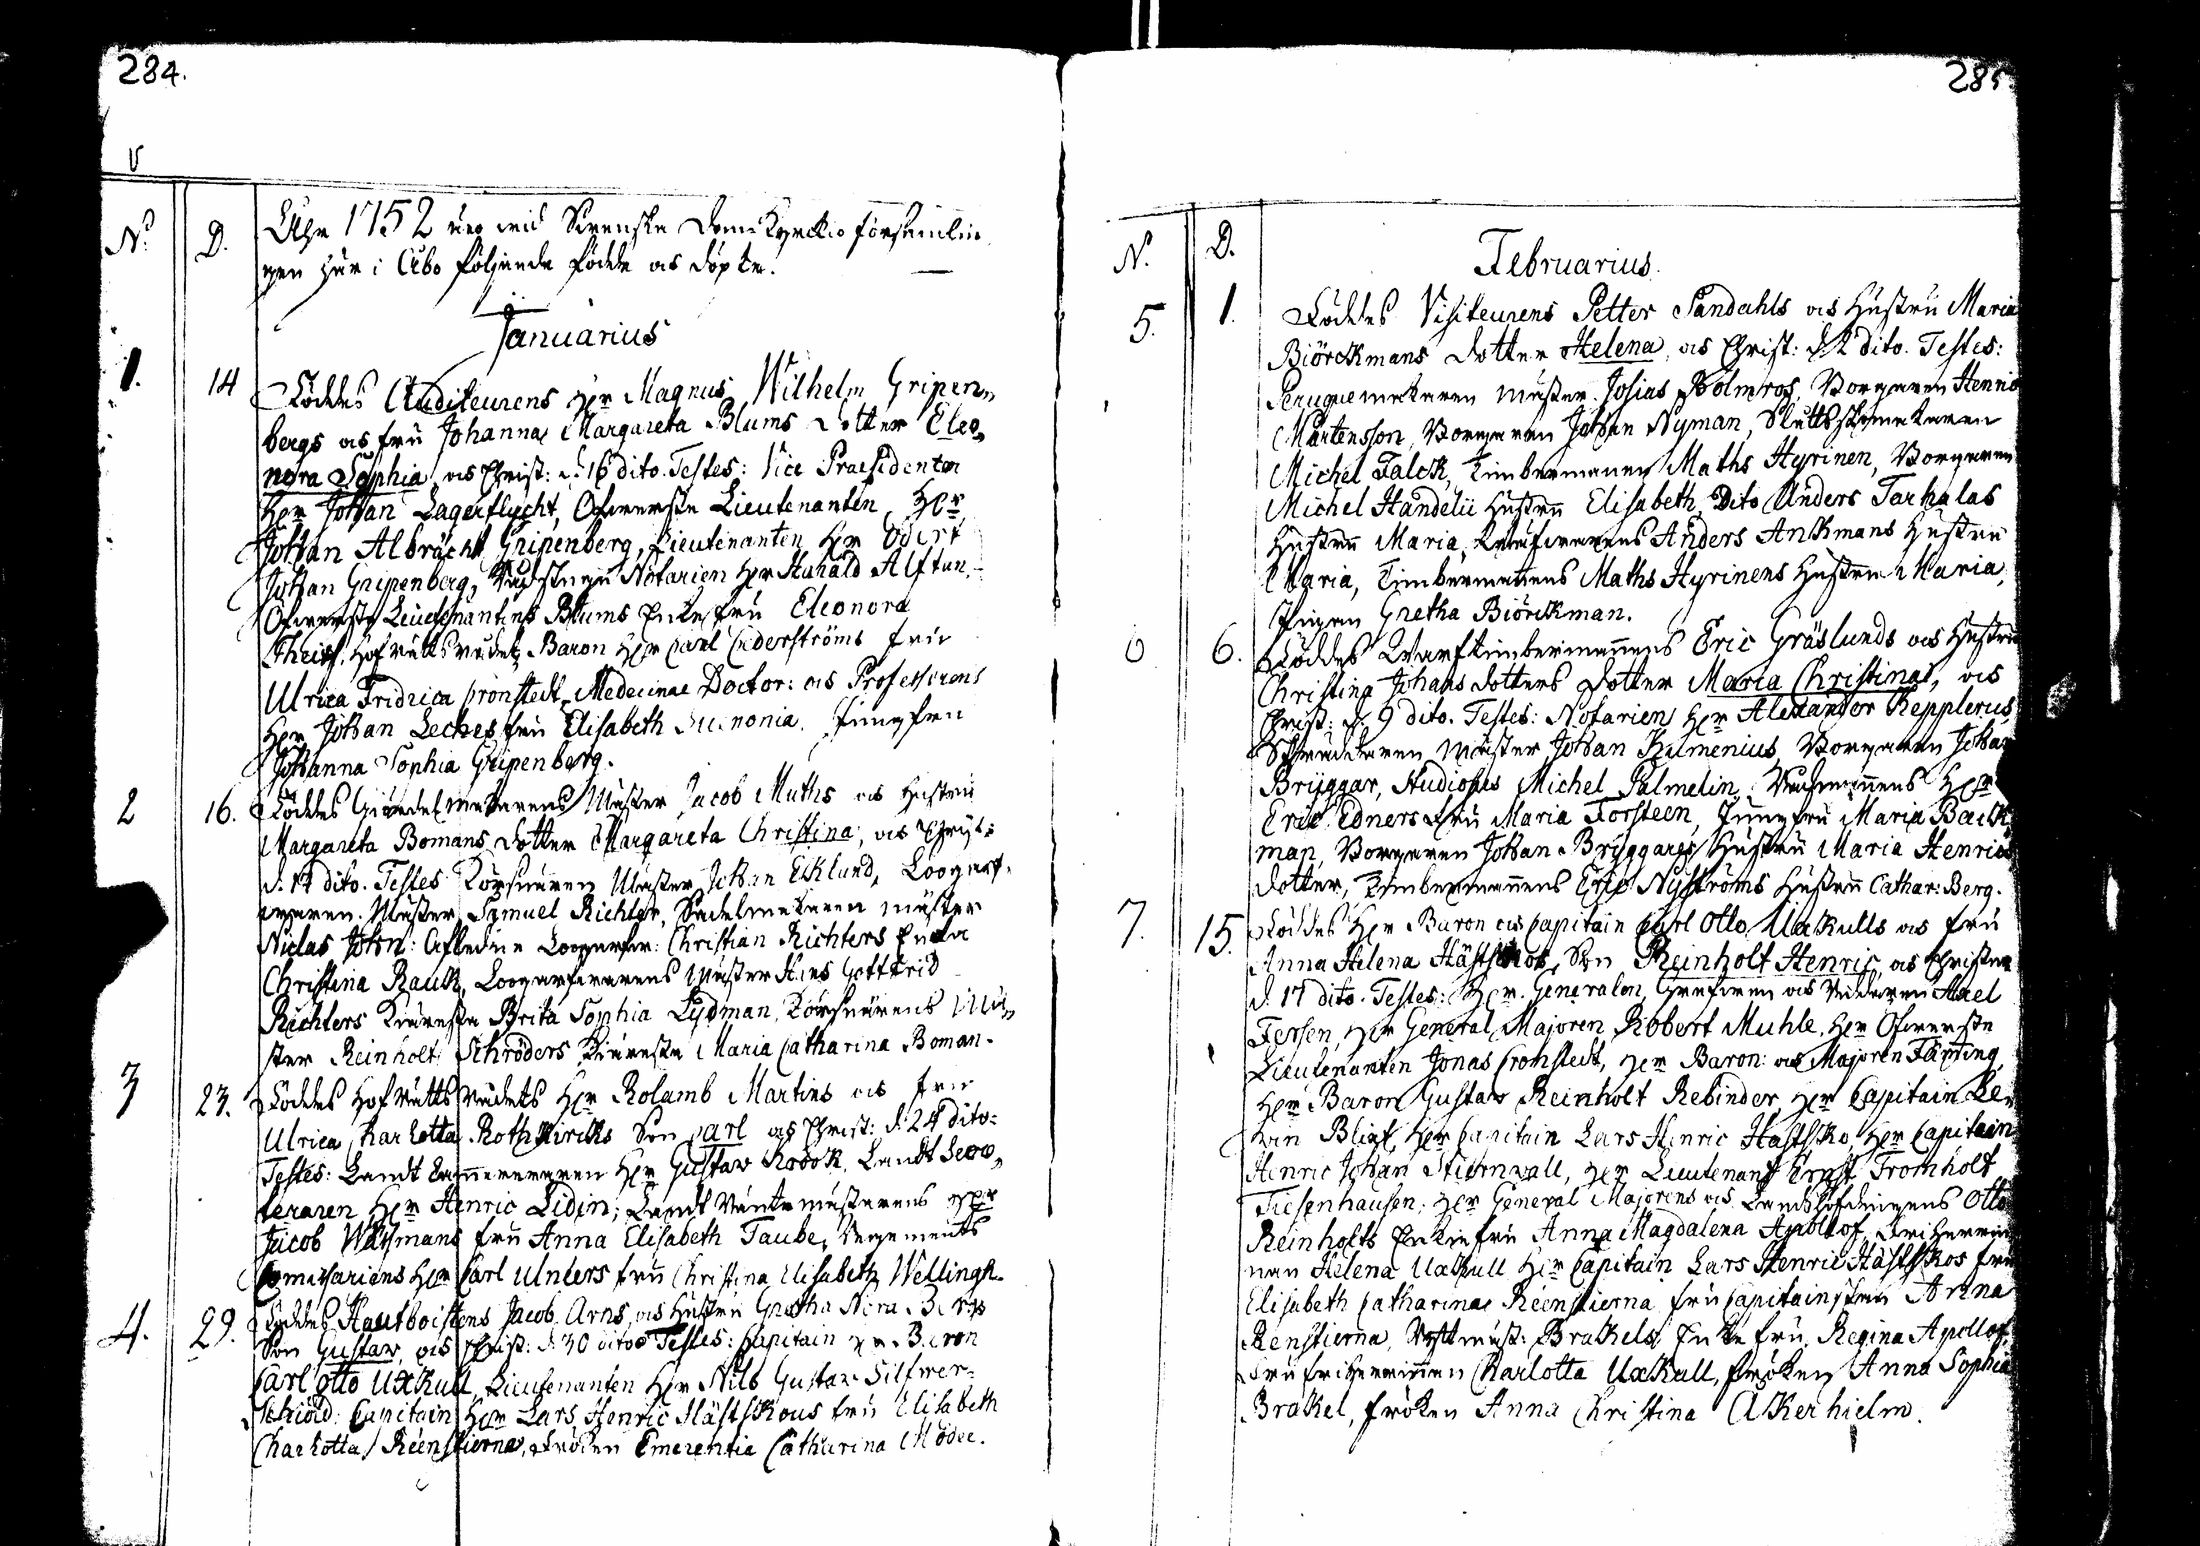 284.
No. D. Åhr 1752 äro wid Swenska Domkyrckio församlin
gen här i Åbo följande födde och döpte.
Januarius
1. 14 Föddes Auditeurens Herr Magnus Wilhelm Gripen„
bergs och fru Johanna Margareta Blums dotter Eleo„
nora Sophia, och Christ: d. 16 dito. Testes: Vice Praesidenten
Herr Johan Lagerflycht, Öfwerste Lieutenanten Herr
Johan Albrächt Gripenberg, Lieutenanten Herr Odert
Johan Gripenberg, Notarien Herr Harald Alftan,
Öfwerste Lieutenantens Blums Enka fru Eleonora
Theiss, Hofrätts rådets Baron Herr Carl Cederströms fru
Ulrica Fridrica Cronstedt, Medecinae Doctor: och Professorens
Herr Johan Leches fru Elisabeth Jungfru
Johanna Sophia Gripenberg.
2 16. Föddes Giördelmakarens Mäster Jacob Maths och Hustru
Margareta Bomans dotter Margareta Christina, och Christ:
d. 17 dito. Testes Körsnären Mäster Johan Ecklund, Loogarf„
waren Mäster Samuel Richter, Sadelmakaren mäster
Niclas John: Afledne Loogarfw: Christian Richters Enka
Christina Rauk, Loogarfwarens Mäster Hans Gottfrid
Richters Kiäresta Brita Sophia Lydman, Körsnärens Mä„
ster Reinholt Schröders Kiäresta Maria Catharina Boman.
3 23. Föddes Hofrätts rådets Herr Rolamb Martins och fru
Ulrica Charlotta Rothkircks Son Carl och Christ: d. 24 dito:
Testes: Landt Cammereraren Herr Gustav Landt Secre„
teraren Herr Henric Lidin; Landt Räntemästarens Herr
Jacob Wassmans fru Anna Elisabeth Taube, Regements
Comissariens Herr Carl Unlers fru Christina Elisabeth Wellingk.
4. 29. Föddes Hautboistens Jacob Arns och Hustru Gretha Nora Bergs
Son Gustav, och Christ: d. 30 dito Testes: Capitain Herr Baron
Carl Otto Uxkull, Lieutenanten Herr Nils Gustav Silfwer„
schiöld: Capitain Herr Lars Henric Hästskous fru Elisabeth
Charlotta Reenstierna, Fröken Emerentia Catharina Mödee.
285
N. D. Februarius.
5. 1. Föddes Visiteurens Petter Sandahls och Hustru Maria
Biörckmans dotter Helena, och Christ: d. 2 dito. Testes:
Peruquemakaren mäster Josias Holmros, Borgaren Henric
Mårtensson, Borgaren Johan Nyman, Slåttskomakaren
Michel Falck, Timbermannen Maths Hyrinen, Borgaren
Michel Handelii Hustru Elisabeth, Dito Anders Tarhalas
Hustru Maria, Anders Ankmans Hustru
Maria, Timbermannens Maths Hyrinens Hustru Maria,
Pigan Gretha Biörckman.
6 6. Föddes Warftimbermannens Eric Gräslunds och Hustru
Christina Johans dotters dotter Maria Christina, och
Christ: d. 9 dito. Testes: Notarien Herr Alexander Kepplerus,
Skräddaren Mäster Johan Kilmenius, Borgaren Johan
Bryggar, Studiosus Michel Palmelin, Rådmannens Herr
Eric Edners fru Maria Forsteen, Jungfru Maria Back
man, Borgaren Johan Bryggares Hustru Maria Henrics
dotter, Timbermannens Eric Nyströms Hustru Cathar: Berg.
7. 15. Föddes Herr Baron och Capitain Carl Otto Uxkulls och fru
Anna Helena Hästskos, Son Reinholt Henric, och Christn
d. 17 dito. Testes: Herr Generalen, Grefwen och Riddaren Axel
Fersen, Herr General Majoren Robert Muhle, Herr Öfwerste
Lieutenanten Jonas Cronstedt, Herr Baron: och Majoren
Herr Baron Gustav Reinholt Rebinder Herr Capitain
Herr Capitain Lars Henric Hästsko, Herr Capitain
Henric Johan Stiernvall, Herr Lieutenant Ernst Fromholt
Tiesenhausen; Herr General Majorens och Landshöfdingens Otto
Reinholts Enkefru Anna Magdalena Apollof, Friherrin
nan Helena Uxkull Herr Capitain Lars Henric Hästskos fru
Elisabeth Catharina Reenstierna fru Capitainskan Anna
Renstierna, Ryttmäst: Brakels Enke fru Regina Apollof,
Fru friherrinnan Charlotta Uxkull, fröken Anna Sophia
Brakel, fröken Anna Christina Akerhielm.